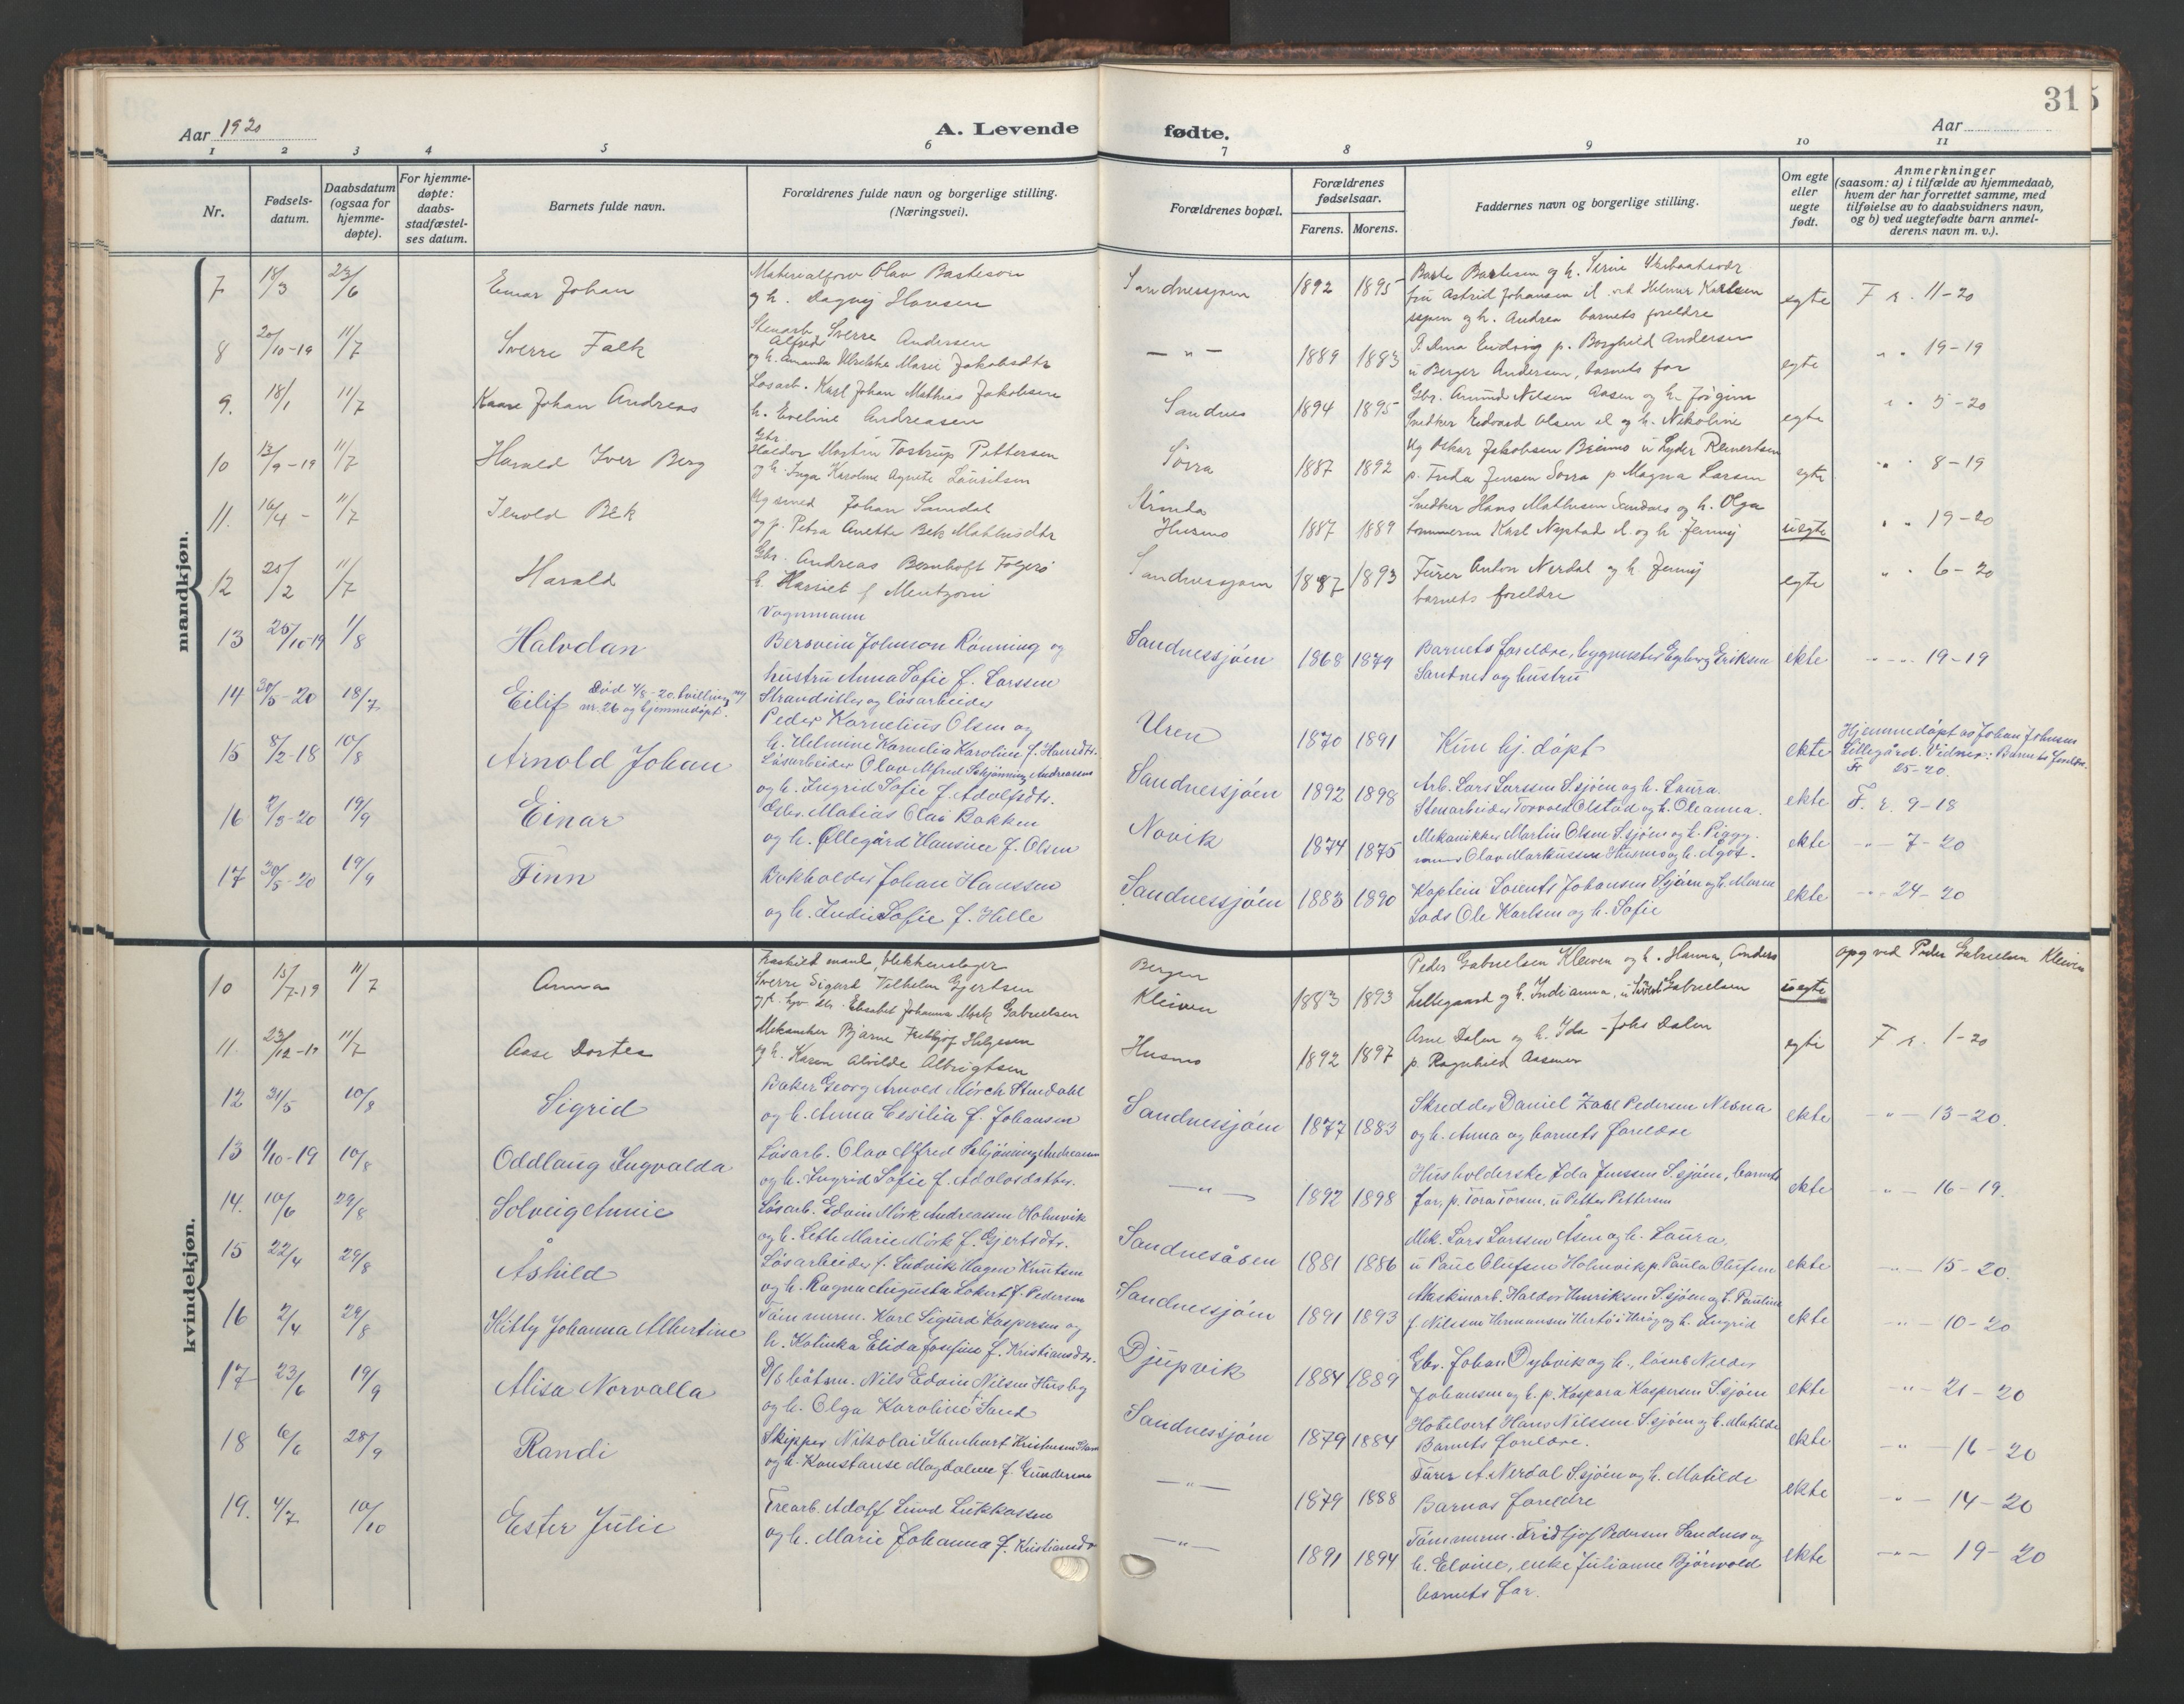 Aar 1920
A. Levende fødte.
Aar
31
1 2 3 4 5 6 7 8 9 10 11
Nr.
Fødsels-
datum.
Daabsdatum
(ogsaa for
hjemme-
døpte).
For hjemme-
døpte:
daabs-
stadfæstel-
ses datum.
Barnets fulde navn.
Forældrenes fulde navn og borgerlige stilling.
(Næringsvei).
Forældrenes bopæl.
Forældrenes
fødselsaar.
Farens. Morens.
Faddernes navn og borgerlige stilling.
Om egte
eller
uegte
født.
Anmerkninger
(saasom: a) i tilfælde av hjemmedaab,
hvem der har forrettet samme, med
tilføielse av to daabsvidners navn,
og b) ved uegtefødte barn anmel-
derens navn m. v.).
mandkjøn.
7 18/3 23/6 Einar Johan
Materialforv Olav Bastesen
og h. Dagny Hansen
Sandnessjøen 1892 1895
fru Astrid Johansen
og h. Andrea barnets foreldre
egte F. r. 11-20
8 20/10-19 11/7 Sverre Falk
Stenarb. Sverre Andersen
Alfred
og h. Amanda Ulrikke Marie Jakobsdtr
— " — 1889 1883
p. Borghild Andersen
u Berger Andersen, barnets far
egte " " 19-19
9. 18/1 11/7 Kaare Johan Andreas
Løsarb. Karl Johan Mathias Jakobsen
h. Eveline Andreasen
Sandnes 1894 1895
Gbr. Amund Nilsen Aasen og h. Jørgine
Snedker Edvard Olsen og h. Nikoline
egte " " 5-20
10 13/9-19 11/7 Harald Iver Berg
Gbr.
Haldor Martin Tostrup Pettersen
og h. Inga Karoline Agnete Lauritsen
Sørra 1887 1892
Ug Oskar Jakobsen Breimo u Lyder Reinertsen
p. Frida Jensen Sørra p Magna Larsen
egte " " 8-19
11. 16/4 - 11/7 Bek
Ug smed Johan Sandal
og p. Petra Anetta Bek Mathisdtr
Husmo 1887 1889
Snedker Hans Mathisen Sandnes og h. Olga
tømmerm Karl Nystad og h Jenny
uegte " " 19-20
12 25/2 11/7 Harald
Gbr. Andreas Bernhoft Folgerø
h. Harriet f Mentzoni
Sandnessjøen 1887 1893
Fürer Anton Nerdal og h Jenny
barnets foreldre
egte " " 6-20
13 25/10-19 1/8 Halvdan
Vognmann
Bersvein Johnson Rønning og
hustru Anna Sofie f. Larssen
Sandnessjøen 1868 1879
Barnets foreldre, bygmester Egberg Eriksen
Sandnes og hustru
ekte " 19-19
14 30/5-20 18/7 Eilif
Død 4/8-20. tvilling
nr. 26 og hjemmedøpt.
Strandsitter og løsarbeider
Peder Kornelius Olsen og
h. Helmine Kornelia Karoline f. Hansdtr.
Uren 1870 1891 Kun hj. døpt
ekte
Hjemmedøpt av Johan Johnsen
Lillegård. Vidner: Barnets foreldre.
Fr 25-20.
15 8/2-18 10/8 Arnold Johan
Løsarbeider Olav Alfred Schjønning Andreassen
og h. Ingrid Sofie f. Adolfsdtr.
Sandnessjøen 1892 1898
Arb. Lars Larssen S.sjøen og h. Laura.
Stenarbeider Torvald Olstad og h. Oleanna.
ekte F. r. 9-18
16 2/3-20 19/9 Einar
Gbr. Matias Olai Bakken
og h. Øllegård Hansine f. Olsen
Novik 1874 1875
Mekanikker Martin Olsen S.sjøen og h. Piggy.
Olav Markussen Husmo og h. Ågot.
ekte — " — 7-20
17 30/5-20 19/9 Finn
Bokholder Johan Hanssen
og h. Indie Sofie f. Helle
Sandnessjøen 1883 1890
Kaptein Lorents Johansen S.sjøen og h. Maren
Lods Ole Karlsen og h. Sofie
ekte — " — 24-20
kvindekjøn.
10 13/7-19 11/7 Anna
Fraskilt mand, blekkenslager
Sverre Sigurd Vilhelm Gjertsen
Elisabet Johanna Mørk Gabrielsen
Bergen
Kleiven 1883 1893
Peder Gabrielsen Kleiven og h. Hanna, Anders
Lillegaard og h. Indianna, u Sivert Gabrielsen
uegte opg ved Peder Gabrielsen Kleiven
11 23/12-19 11/7 Aase Dortea
Mekaniker Bjarne Fridtjof Helgesen
og h. Karen Alvilde Albrigtsen
Husmo 1892 1897
Arne Dalen og h. Ida - Johs Dalen
p. Ragnhild Aasmo
egte F. r. 1-20
12 31/5 10/8 Sigrid
Baker Georg Arnold Mørch Stendahl
og h. Anna Cesilie f. Johansen
Sandnessjøen 1877 1883
Skredder Daniel Zahl Pedersen Nesna
og h. Anna og barnets foreldre
ekte — " — 13-20.
13 1/10-19 10/8 Oddlaug Ingvalda
Løsarb. Olav Alfred Schjønning Andreassen
og h. Ingrid Sofie f. Adolfsdatter.
— " — 1892 1898
Husholderske Ida Jenssen S.sjøen, barnets
far, p. Tora Torsen, u Petter Pettersen
ekte — " — 16-19.
14. 10/6 29/8 Solveig Annie
Løsarb. Edvin Mørk Andreassen Holmvik
og h. Lette Marie Mørk f. Gjertsdtr.
Sandnesåsen 1881 1886
Mek. Lars Larssen Åsen og h. Laura.
u Paul Olufsen Holmvik p. Paula Olufsen
ekte — " — 15-20.
15 22/4 29/8 Åshild
Løsarbeider f. Ludvik Hagen Knutsen
og h. Ragna Augusta Lokert f. Pedersen
Sandnessjøen 1891 1893
Maskinarb. Haldor Henriksen S.sjøen og h. Pauline
f. Nilssen Hermansen Hertø i Herøy og h. Ingrid
ekte — " — 10-20
16 2/4 29/8 Kitty Johanna Albertine
Tømmerm. Karl Sigurd Kaspersen og
h. Katinka Elida Josefine f. Kristiansdtr.
Djupvik 1884 1889
Gbr. Johan Dybvik og h., løsarb Nelder
Johansen og h. p. Kaspara Kaspersen S.sjøen
ekte — " — 21-20
17 23/6 19/9 Alisa Norvalla
D/S båtsm. Nils Edvin Nilsen Husby
og h. Olga Karoline Sand
Sandnessjøen 1879 1884
Hotelvert Hans Nilssen S.sjøen og h. Matilde
Barnets foreldre.
ekte — " — 16-20
18 6/6 28/9 Randi
Skipper Nikolai Ebenhart Kristensen
og h. Konstanse Magdalene f. Gundersen
— " — 1879 1888
Fürer A. Nerdal S.sjøen og h. Matilde
Barnas foreldre
ekte — " — 14-20
19. 4/7 10/10 Ester Julie
Trearb. Adolf Lund Lukkassen
og h. Marie Johanna f. Kristiansd
— " — 1891 1894
Tømmerm. Fridtjof Pedersen Sandnes og
h. Elvine, enke Julianne Bjørnvold
barnets far.
ekte — " — 19-20